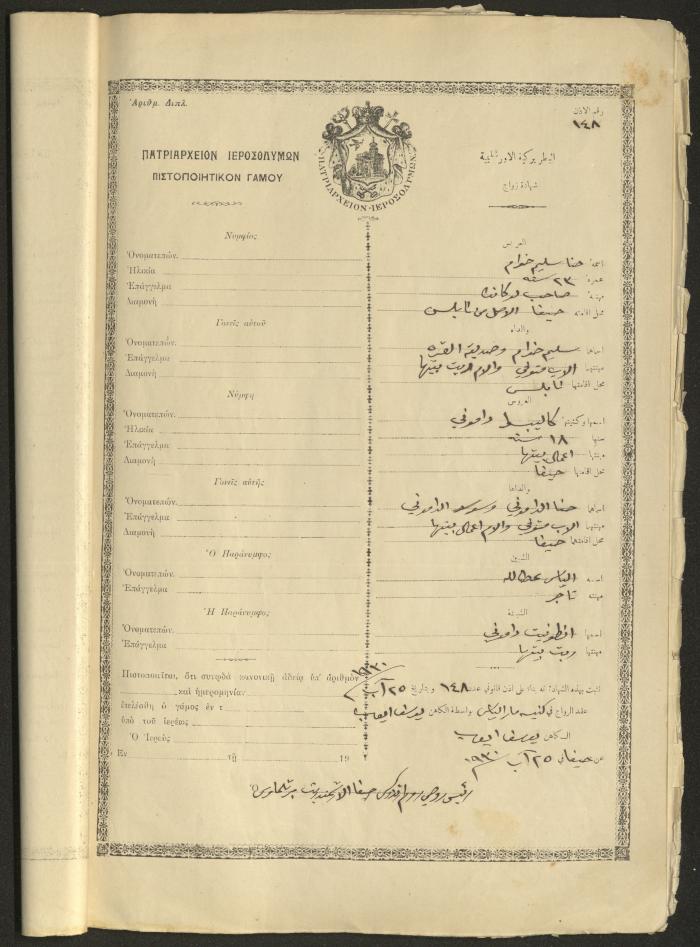 Ἀριθμ. Διπλ.
رقم الاذن
١٤٨
ΠΑΤΡΙΑΡΧΕΙΟΝ ΙΕΡΟΣΟΛΥΜΩΝ
ΠΙΣΤΟΠΟΙΗΤΙΚΟΝ ΓΑΜΟΥ
ΠΑΤΡΙΑΡΧΕΙΟΝ-ΙΕΡΟΣΟΛΥΜΩΝ
البطريركية الاورشليمية
شهادة زواج
Νυμφίος
Ὀνοματεπών.
Ἡλικία
Ἐπάγγελμα
Διαμονή
Γονεῖς αὐτοῦ
Ὀνοματεπών.
Ἐπάγγελμα
Διαμονή
Νύμφη
Ὀνοματεπών.
Ἡλικία
Ἐπάγγελμα
Διαμονή
Γονεῖς αὐτῆς
Ὀνοματεπών.
Ἐπάγγελμα
Διαμονή
Ὁ Παράνυμφος
Ὀνοματεπών.
Ἐπάγγελμα
Ἡ Παράνυμφος
Ὀνοματεπών.
Ἐπάγγελμα
Πιστοποιεῖται, ὅτι συνῳδὰ κανονικῇ ἀδείᾳ ὑπ' ἀριθμὸν
καὶ ἡμερομηνίαν
ἐτελέσθη ὁ γάμος ἐν τ
ὑπὸ τοῦ ἱερέως
Ὁ Ἱερεὺς
Ἐν τῇ 19
العريس
اسمه حنا سليم خزام
عمره ٢٣ سنة
مهنته صاحب دكان
محل اقامته حيفا الاصل من نابلس
والداه
اسماهما سليم خزام وصديقة القره
مهنتهما الاب متوفي والام ربت بيتها
محل اقامتهما نابلس
العروس
اسمها وكنيتها داموني
سنها ١٨ سنة
مهنتها اعمال بيتها
محل اقامتها حيفا
والداها
اسماهما حنا الداموني وسوسه الداموني
مهنتهما الاب متوفي والام اعمال بيتها
محل اقامتهما حيفا
الشبين
اسمه الياس عطالله
مهنته تاجر
الشبينة
اسمها انطونيت داموني
مهنتها ربت بيتها
نثبت بهذه الشهادة انه بناء على اذن قانوني عدد ١٤٨ وبتاريخ ٢٥ آب ١٩٣٠
عقد الزواج في كنيسة مار الياس بواسطة الكاهن يوسف ايوب
الكاهن يوسف ايوب
عن حيفا في ٢٥ آب ١٩٣٠
رئيس روحي روم ارثوذكس حيفا